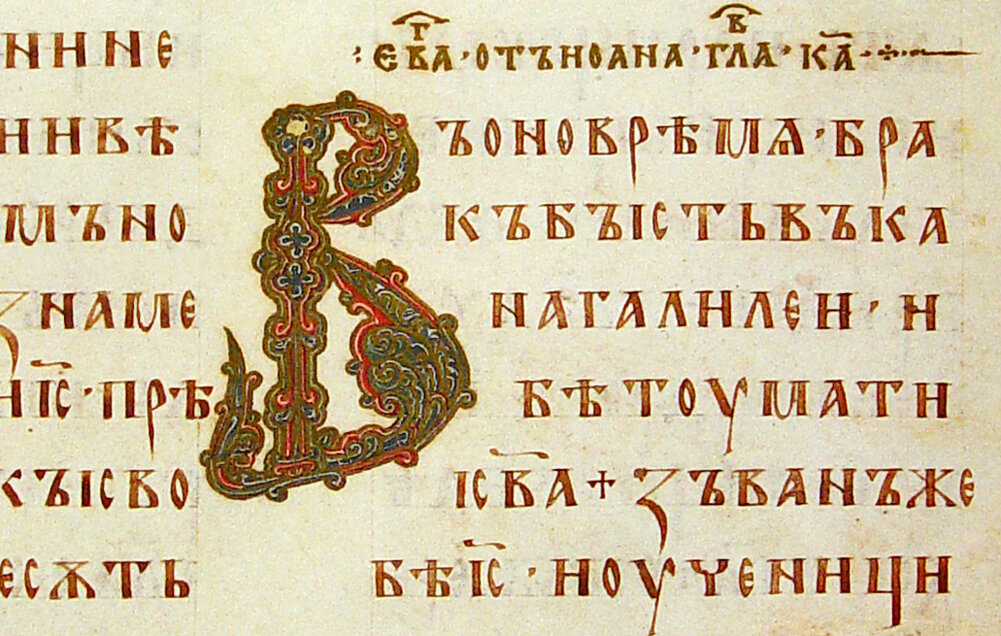 НИНЕ
ИИВѢ
МЪНО
ЗНАМЕ
ИІ҃С·ПРѢ
КЪІСВО
ЕСѪТЬ
⁝ ЕВ҃Г҃А·ОТЪИОАНА·ГЛ҃В҃А·КА҃·
ВЪОНОВРѢМѦ·БРА
КЪБЪІСТЬВЪКА
НАГАЛИЛЕИ·И
БѢТОУМАТИ
ІСВ҃А+ЗЪВАНЪЖЕ
БѢІ҃С·ИОУЧЕНИЦИ